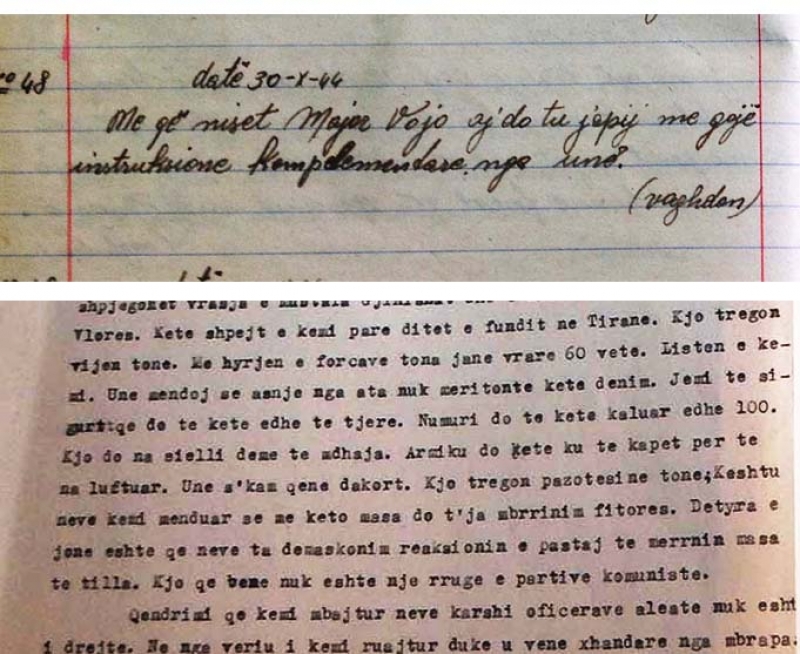 № 48
datë 30-X-44
Me që niset Major Vojo aj do tu japij me gojë
instruksione komplementare nga unë.
(vaghdon)
shpjegohet vrasja e Mustafa Gjinishi.
Vlores. Kete shpejt e kemi pare ditet e fundit ne Tirane. Kjo tregon
vijen tone. Me hyrjen e forcave tona jane vrare 60 vete. Listen e ke-
mi. Une mendoj se asnje nga ata nuk meritonte kete denim. Jemi te si-
gurt qe do te kete edhe te tjere. Numuri do te kete kaluar edhe 100.
Kjo do na sielli deme te mdhaja. Armiku do kete ku te kapet per te
na luftuar. Une s'kam qene dakort. Kjo tregon pazotesine tone;Keshtu
neve kemi menduar se me keto masa do t'ja mbrrinim fitores. Detyra e
jone eshte qe neve ta demaskonim reaksionin e pastaj te merrnin masa
te tilla. Kjo qe beme nuk eshte nje rruge e partive komuniste.
Qendrimi qe kemi mbajtur neve karshi oficerave aleate nuk esht
i drejte. Ne nga veriu i kemi ruajtur duke u vene xhandare nga mbrapa.